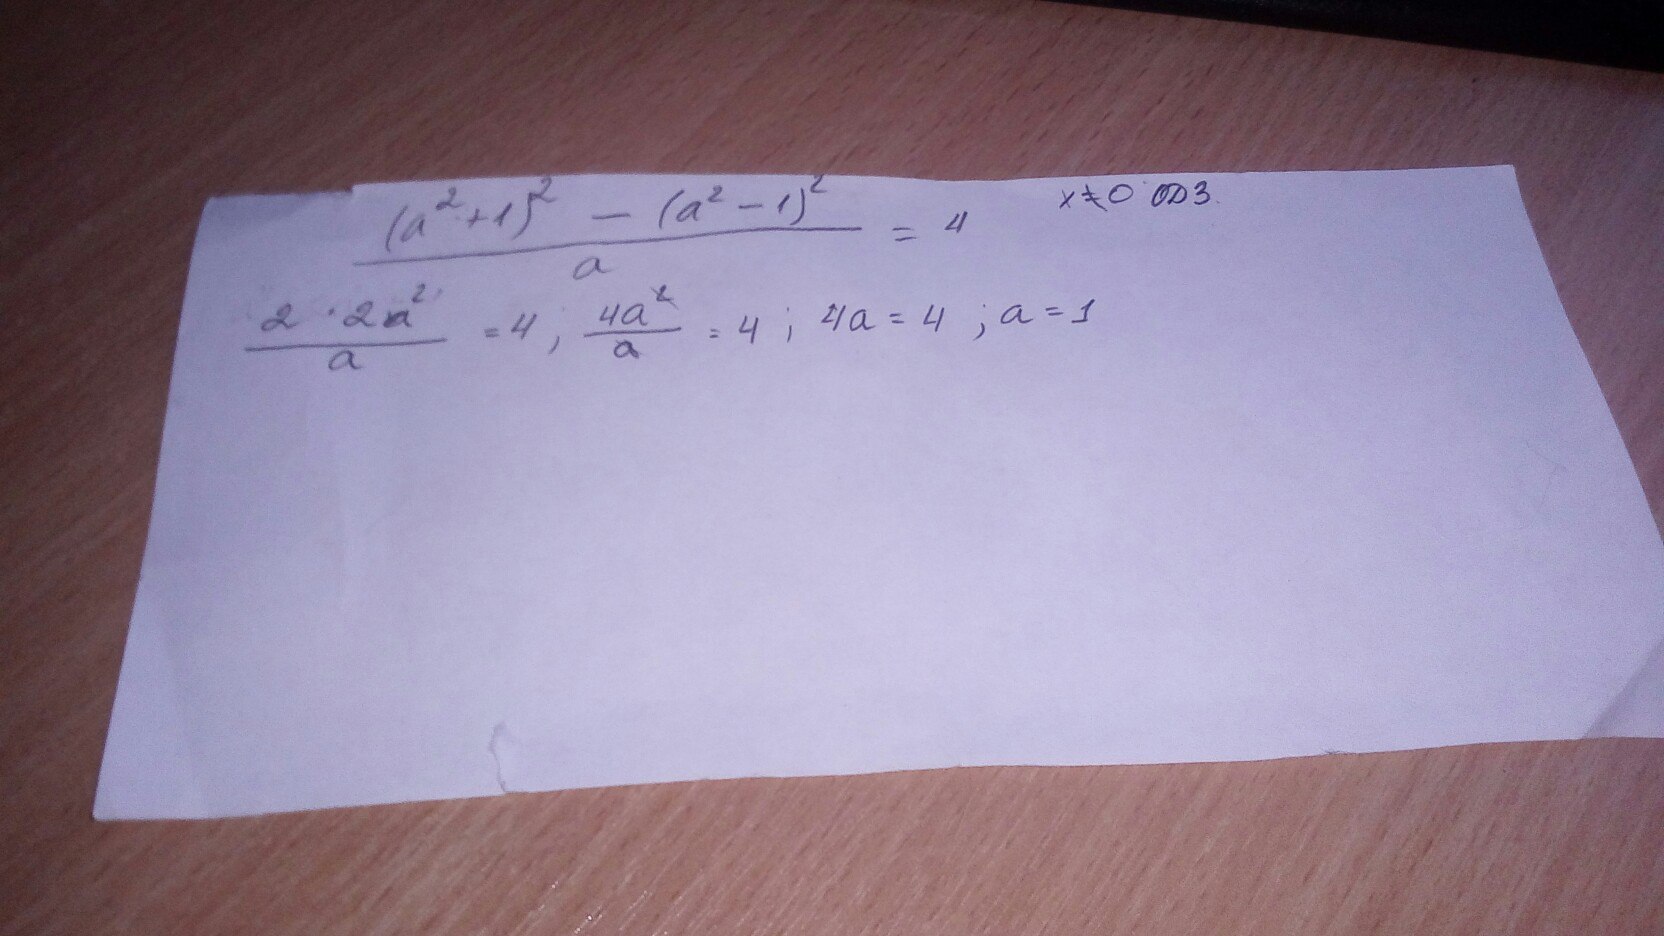 (a²+1)² − (a²−1)² / a = 4 x≠0 ОДЗ.
2·2a² / a = 4; 4a² / a = 4; 4a = 4; a = 1